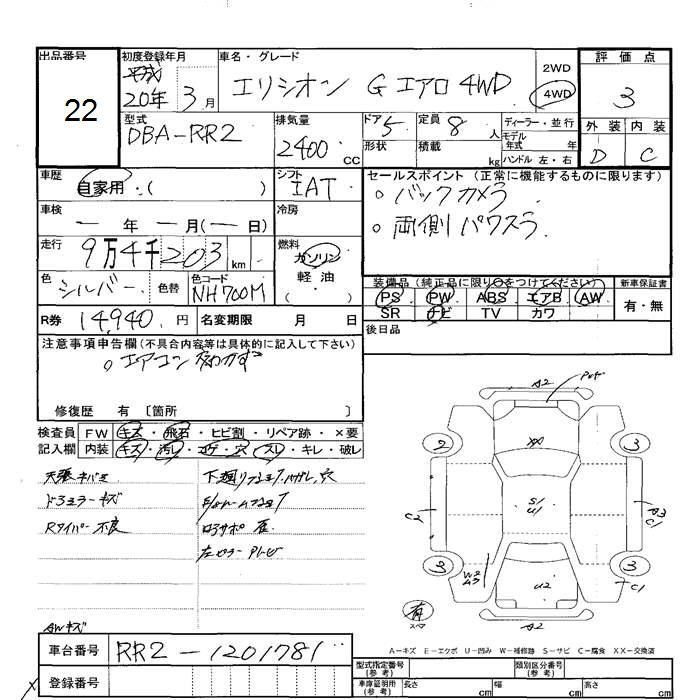 出品番号
22
初度登録年月
平成
20年 3月
車名・グレード
エリシオン G エアロ 4WD
2WD
4WD
評価点
3
外装 内装
D C
型式
DBA-RR2
排気量
2400 cc
ドア 5
形状
定員 8 人
積載 kg
ディーラー・並行
モデル年式 年
ハンドル 左・右
車歴
自家用・( )
シフト
IAT
セールスポイント (正常に機能するものに限ります)
。バックカメラ
。両側パワスラ
車検
― 年 ― 月(― 日)
冷房
走行
9万4千203 km
燃料
ガソリン
軽油
色
シルバー
色替
色コード
NH700M
装備品 (純正品に限り○をつけてください)
新車保証書
PS PW ABS エアB AW
有・無
SR ナビ TV カワ
R券 14,940 円
名変期限 月 日
後日品
注意事項申告欄(不具合内容等は具体的に記入して下さい)
。エアコン
修復歴 有 〔箇所 〕
検査員 FW キズ・飛石・ヒビ割・リペア跡・×要
記入欄 内装 キズ・汚れ・コゲ・穴・スレ・キレ・破レ
ドミラーキズ
Rワイパー不良
AWキズ
A2
2
3
XX
S1
U1
C2
A3
C1
3
3
W2
A3
U2
C1
有
スペア
A2
A-キズ E-エクボ U-凹み W-補修跡 S-サビ C-腐食 XX-交換済
車台番号 RR2-1201781
登録番号
型式指定番号(参考)
類別区分番号(参考)
車庫証明用(参考)
長さ cm 幅 cm 高さ cm